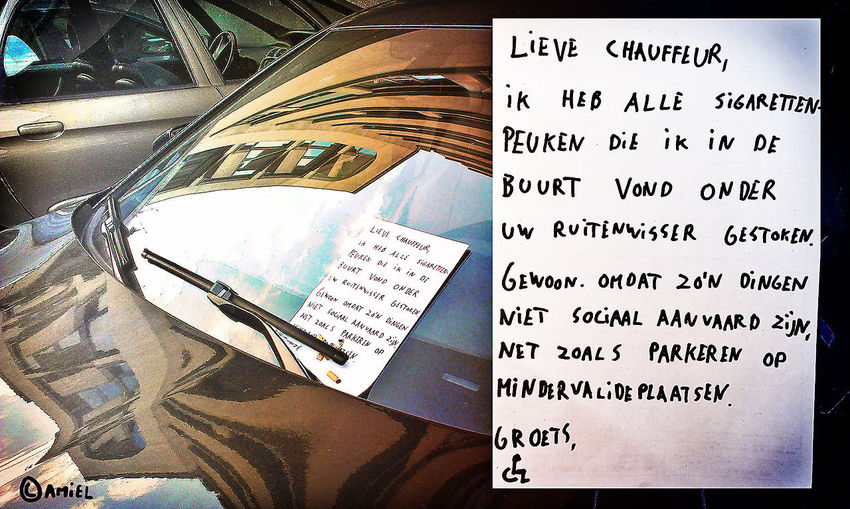 LIEVE CHAUFFEUR,
IK HEB ALLE SIGARETTEN-
PEUKEN DIE IK IN DE
BUURT VOND ONDER
UW RUITENWISSER GESTOKEN.
GEWOON. OMDAT ZO'N DINGEN
NIET SOCIAAL AANVAARD ZIJN,
NET ZOALS PARKEREN OP
MINDERVALIDEPLAATSEN.
GROETS,
LIEVE CHAUFFEUR,
IK HEB ALLE SIGARETTEN-
PEUKEN DIE IK IN DE
BUURT VOND ONDER
UW RUITENWISSER GESTOKEN
GEWOON. OMDAT ZO'N DINGEN
NIET SOCIAAL AANVAARD ZIJN,
NET ZOALS PARKEREN OP
© AMIEL